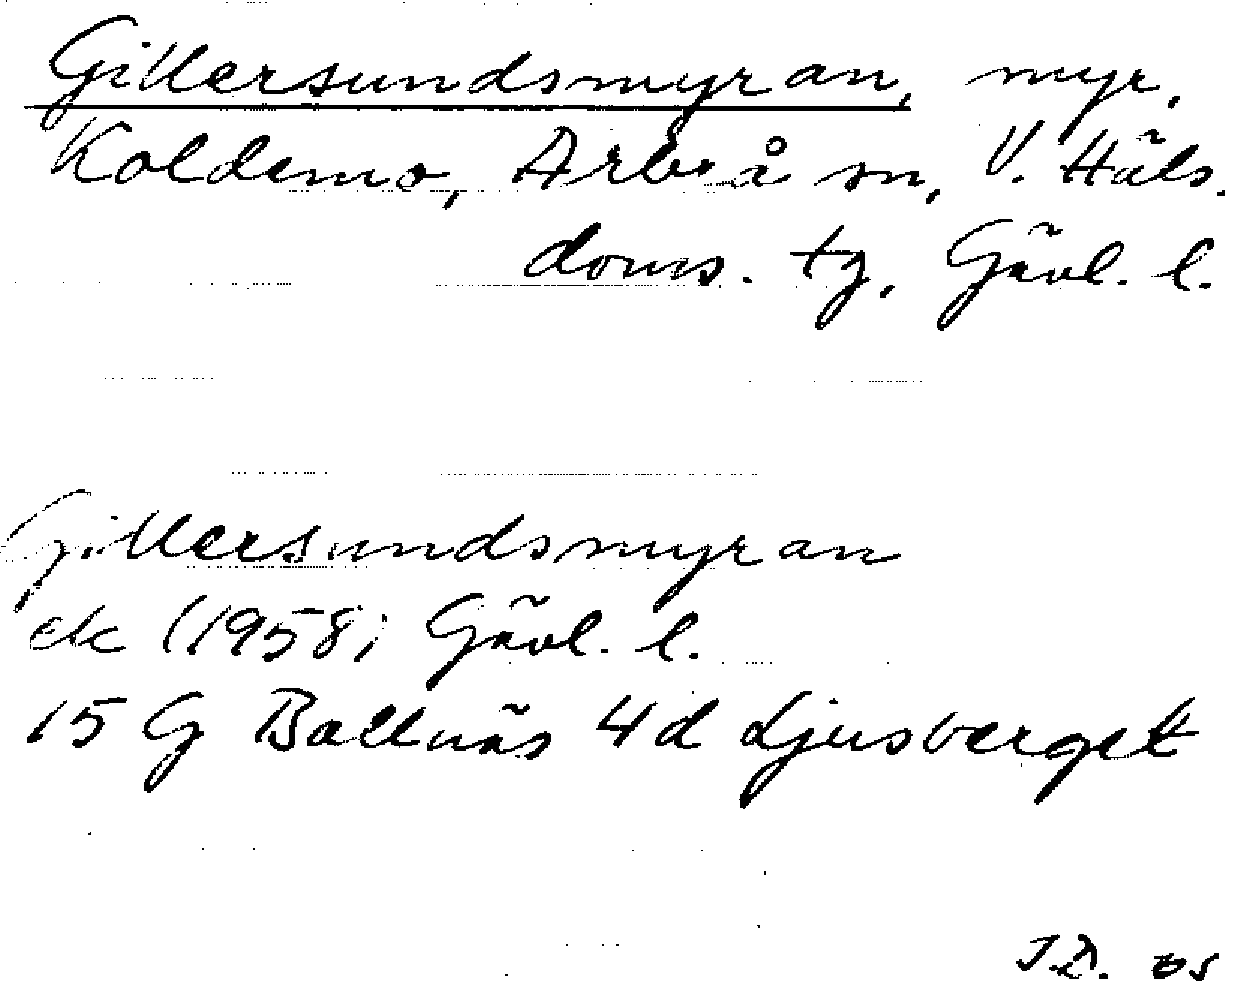 Gillersundsmyran, myr,
Koldemo, Arbrå sn, V. Häls.
doms. tg, Gävl. l.
Gillersundsmyran
ek (1958) Gävl. l.
15 G Bollnäs 4d Ljusberget
J.D.